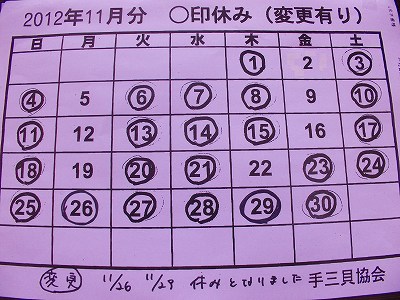 2012年11月分 〇印休み(変更有り)
日 月 火 水 木 金 土
1 2 3
4 5 6 7 8 9 10
11 12 13 14 15 16 17
18 19 20 21 22 23 24
25 26 27 28 29 30
変更 11/26 11/29 休みとなりました 手三貝協会